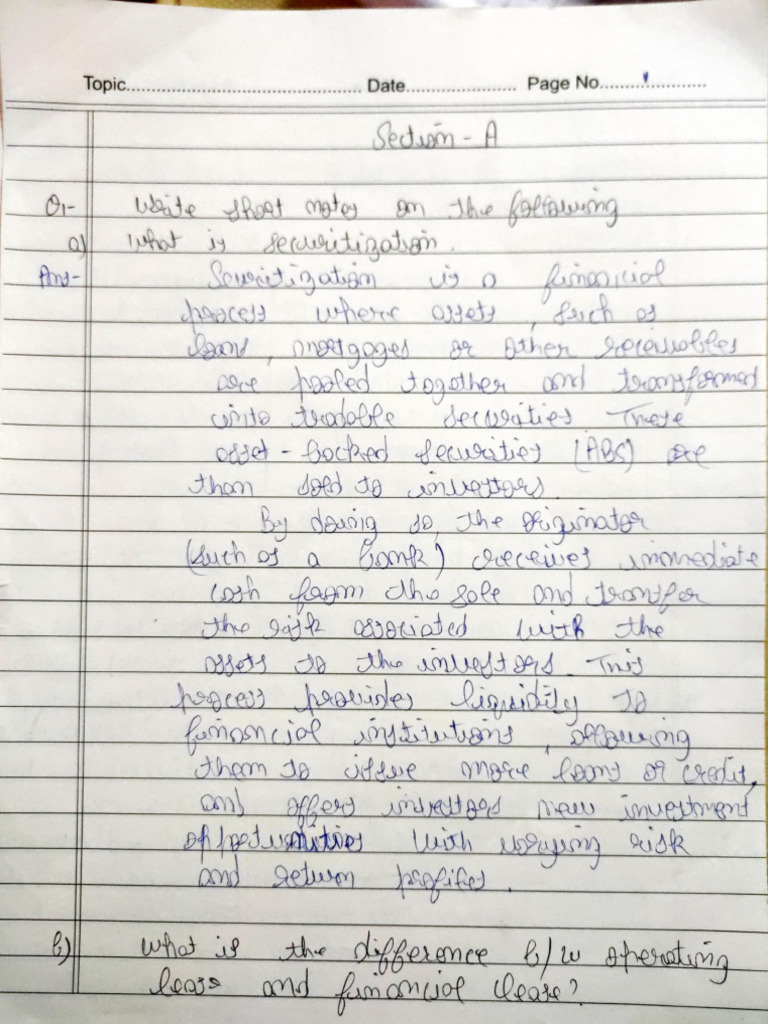 Topic.............................................. Date...................... Page No......................
Section - A
Q1- Write short notes on the following
a) What is securitization.
Ans- Securitization is a financial
process where assets, such as
loans, mortgages or other receivables
are pooled together and transformed
into tradable securities These
asset-backed securities (ABS) are
than sold to investors.
By doing so, the originator
(such as a bank) receives immediate
cash from the sale and transfer
the risk associated with the
assets to the investors. This
process provides liquidity to
financial institutions, allowing
them to issue more loans or credit,
and offers investors new investment
opportunities with varying risk
and return profiles.
b) What is the difference b/w operating
lease and financial lease?